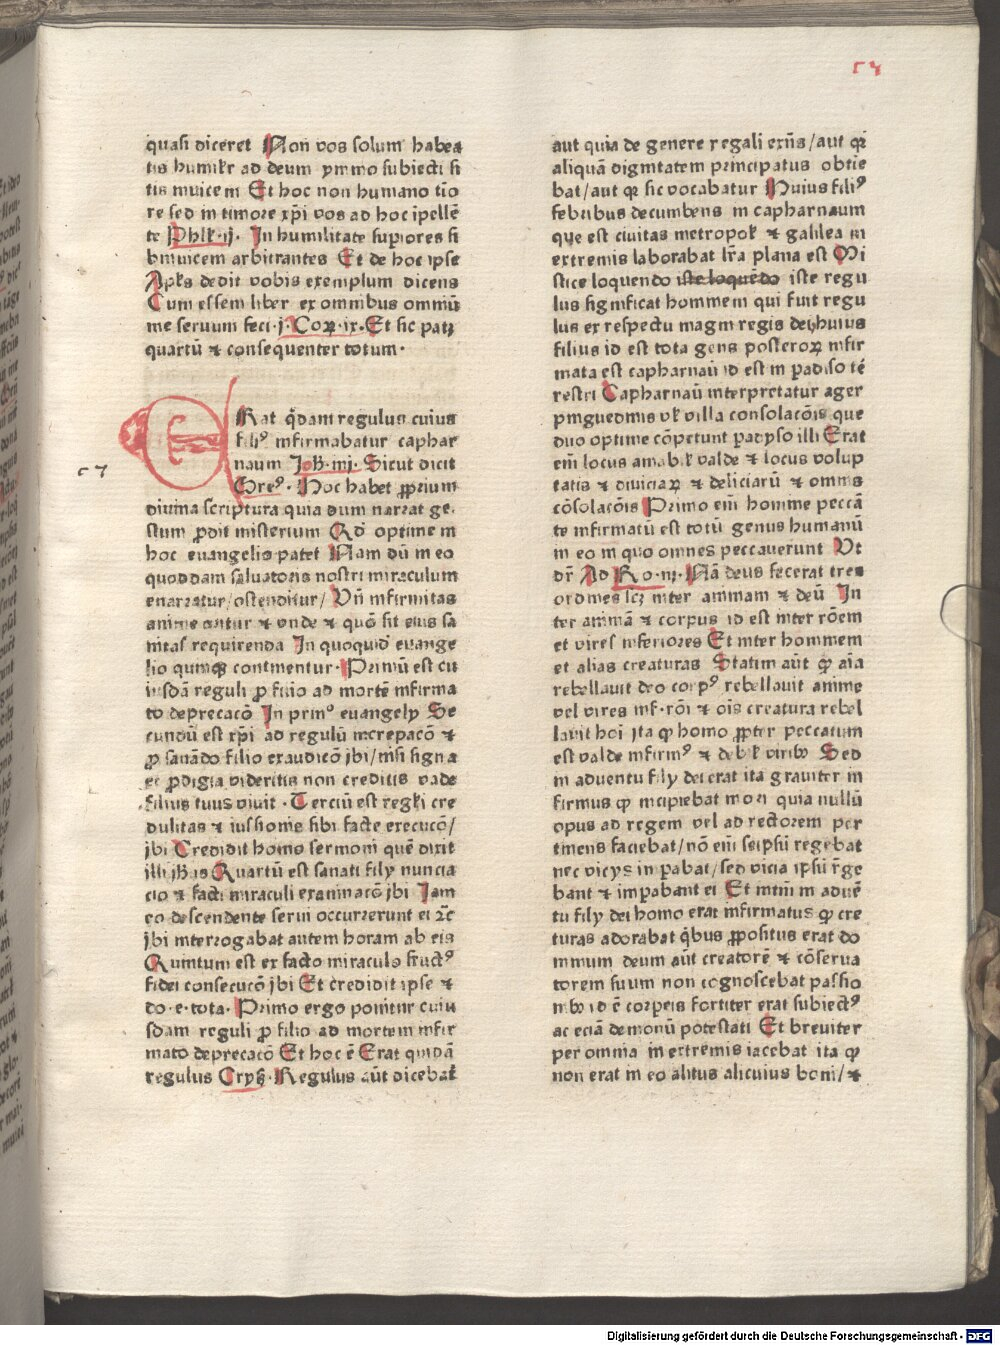 57
quasi diceret Non vos solum habea
tis humilr ad deum ymmo subiecti si
tis inuicem Et hoc non humano tiō
re sed in timore xp̄i vos ad hoc īpellē
te Phlꝭ·ij· In humilitate supiores si
bi inuicem arbitrantes Et de hoc ipse
Apl̄s dedit vobis exemplum dicens
Cum essem liber ex omnibus omniū
me seruum feci·j·Coꝝ·ix·Et sic patꝫ
quartū ⁊ consequenter totum·
ERat q̄dam regulus cuius
fili⁹ infirmabatur caphar
naum Joh̄·iiij· Sicut dicit
57
Gre⁹· Hoc habet ꝓprium
diuina scriptura quia dum narrat ge·
stum ꝓdit misterium Qd̄ optime in
hoc euangelio patet Nam dū in eo
quoddam saluatoris nostri miraculum
enarratur/ostenditur/ Vn̄ infirmitas
anime oritur ⁊ vnde ⁊ quō sit eius sa
nitas requirenda In quoquid̄ euange
lio quinqꝫ continentur·Primū est cu
iusdā reguli ꝓ filio ad mortē infirma
to deprecacō In prin⁹ euangelij Se
cundū est xp̄i ad regulū increpacō ⁊
ꝓ sanādo filio exaudicō jbi/nisi signa
et ꝓdigia videritis non creditis vade
filius tuus viuit·Terciū est regl̄i cre
dulitas ⁊ iussionis sibi facte execucō/
jbi Credidit homo sermoni quē dixit
illi jh̄s Quartū est sanati filij nuncia
cio ⁊ facti miraculi examinacō jbi Jam
eo descendente serui occurrerunt ei ⁊c̄
jbi interrogabat autem horam ab eis
Quintum est ex facto miraculo fruct⁹
fidei consecucō jbi Et credidit ipse ⁊
do·e·tota·Primo ergo ponitur cuiu
sdam reguli ꝓ filio ad mortem infir
mato deprecacō Et hoc ē Erat quidā
regulus Crysꝫ·Regulus aūt dicebat
aut quia de genere regali exn̄s/aut qꝛ
aliquā dignitatem principatus obtie
bat/aut qꝛ sic vocabatur Huius fili⁹
febribus decumbens in capharnaum
que est ciuitas metropolꝭ ⁊ galilea in
extremis laborabat lr̄a plana est Mi
stice loquendo iste loquēdo iste regu
lus significat hominem qui fuit regu
lus ex respectu magni regis dei/huius
filius id est tota gens posteroꝝ infir
mata est capharnaū id est in padiso tē
restri Capharnaū interpretatur ager
pinguedinis vlꝭ villa consolacōis que
duo optime cōpetunt padyso illi Erat
em̄ locus amabilꝭ valde ⁊ locus volup
tatis ⁊ diuiciaꝝ ⁊ deliciarū ⁊ omnis
cōsolacōis Primo em̄ homine peccā
te infirmatū est totū genus humanū
in eo in quo omnes peccauerunt Vt
dr̄ Ad Ro·iij·Nā deus fecerat tres
ordines scꝫ inter animam ⁊ deū In
ter animā ⁊ corpus id est inter rōem
et vires inferiores Et inter hominem
et alias creaturas Statim aūt qꝫ aīa
rebellauit deo corp⁹ rebellauit anime
vel vires inf·rōi ⁊ oīs creatura rebel
lauit hoi jta ꝙ homo ꝓpter peccatum
est valde infirm⁹ ⁊ debilꝭ viribꝫ Sed
in aduentu filij dei erat ita grauiter in
firmus ꝙ incipiebat mori quia nullū
opus ad regem vel ad rectorem per
tinens faciebat/nō em̄ seipsū regebat
nec vicijs impabat/sed vicia ipsū r̄ge
bant ⁊ impabant ei Et intm̄ in aduē
tu filij dei homo erat infirmatus ꝙ cre
turas adorabat q̄bus ꝓpositus erat do
minum deum aūt creatorē ⁊ cōserua
torem suum non cognoscebat passio
nibꝫ id ē corpeis fortiter erat subiect⁹
ac eciā demonū potestati Et breuiter
per omnia in extremis iacebat ita ꝙ
non erat in eo alitus alicuius boni/⁊
Digitalisierung gefördert durch die Deutsche Forschungsgemeinschaft - DFG